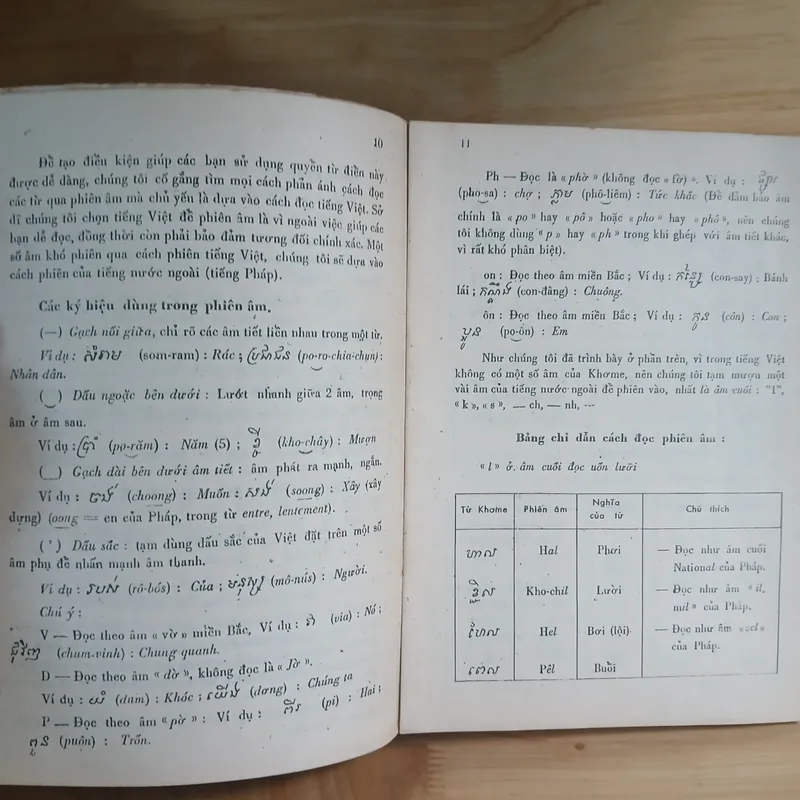 10
Để tạo điều kiện giúp các bạn sử dụng quyển từ điển này
được dễ dàng, chúng tôi cố gắng tìm mọi cách phản ánh cách đọc
các từ qua phiên âm mà chủ yếu là dựa vào cách đọc tiếng Việt. Sở
dĩ chúng tôi chọn tiếng Việt để phiên âm là vì ngoài việc giúp các
bạn dễ đọc, đồng thời còn phải bảo đảm tương đối chính xác. Một
số âm khó phiên qua cách phiên tiếng Việt, chúng tôi sẽ dựa vào
cách phiên của tiếng nước ngoài (tiếng Pháp).
Các ký hiệu dùng trong phiên âm.
(—) Gạch nối giữa, chỉ rõ các âm tiết liền nhau trong một từ.
Ví dụ : សំរាម (som-ram) : Rác ; ប្រជាជន (po-ro-chia-chun) :
Nhân dân.
(‿) Dấu ngoặc bên dưới : Lướt nhanh giữa 2 âm, trọng
âm ở âm sau.
Ví dụ : ប្រាំ (po-răm) : Năm (5) ; ខ្ចី (kho-chây) : Mượn
(_) Gạch dài bên dưới âm tiết : âm phát ra mạnh, ngắn.
Ví dụ : ចង់ (choong) : Muốn : សង់ (soong) : Xây (xây
dựng) (oong = en của Pháp, trong từ entre, lentement).
(') Dấu sắc : tạm dùng dấu sắc của Việt đặt trên một số
âm phụ để nhấn mạnh âm thanh.
Ví dụ : របស់ (rô-bós) : Của ; មនុស្ស (mô-nús) : Người.
Chú ý :
V — Đọc theo âm « vờ » miền Bắc, Ví dụ : វា (via) : Nó ;
ជុំវិញ (chum-vinh) : Chung quanh.
D — Đọc theo âm " dờ ", không đọc là « Jờ ».
Ví dụ : យំ (dum) : Khóc ; យើង (dơng) : Chúng ta
P — Đọc theo âm « pờ » : Ví dụ : ពីរ (pi) : Hai ;
ពួន (puôn) : Trốn.
11
Ph — Đọc là « phờ » (không đọc « fờ) ». Ví dụ : ផ្សារ
(pho-sa) : chợ ; ភ្លាម (phô-liêm) : Tức khắc (Để đảm bảo âm
chính là « po » hay « pô » hoặc « pho » hay « phô », nên chúng
tôi không dùng « p » hay « ph » trong khi ghép với âm tiết khác,
vì rất khó phân biệt).
on : Đọc theo âm miền Bắc ; Ví dụ : (con-say) : Bánh
lái ; (con-đâng) : Chuông.
ôn : Đọc theo âm miền Bắc ; Ví dụ : កូន (côn) : Con ;
ប្អូន (po-ôn) : Em
Như chúng tôi đã trình bày ở phần trên, vì trong tiếng Việt
không có một số âm của Khơme, nên chúng tôi tạm mượn một
vài âm của tiếng nước ngoài để phiên vào, nhất là âm cuối : "l",
« k », « s », — ch, — nh, ---
Bảng chỉ dẫn cách đọc phiên âm :
« l » ở âm cuối đọc uốn lưỡi
Từ Khơme Phiên âm Nghĩa của từ Chú thích
ហាល Hal Phơi — Đọc như âm cuối
National của Pháp.
ខ្ជិល Kho-chil Lười — Đọc như âm « il,
mil » của Pháp.
ហែល Hel Bơi (lội) — Đọc như âm
của Pháp.
ពេល Pêl Buổi